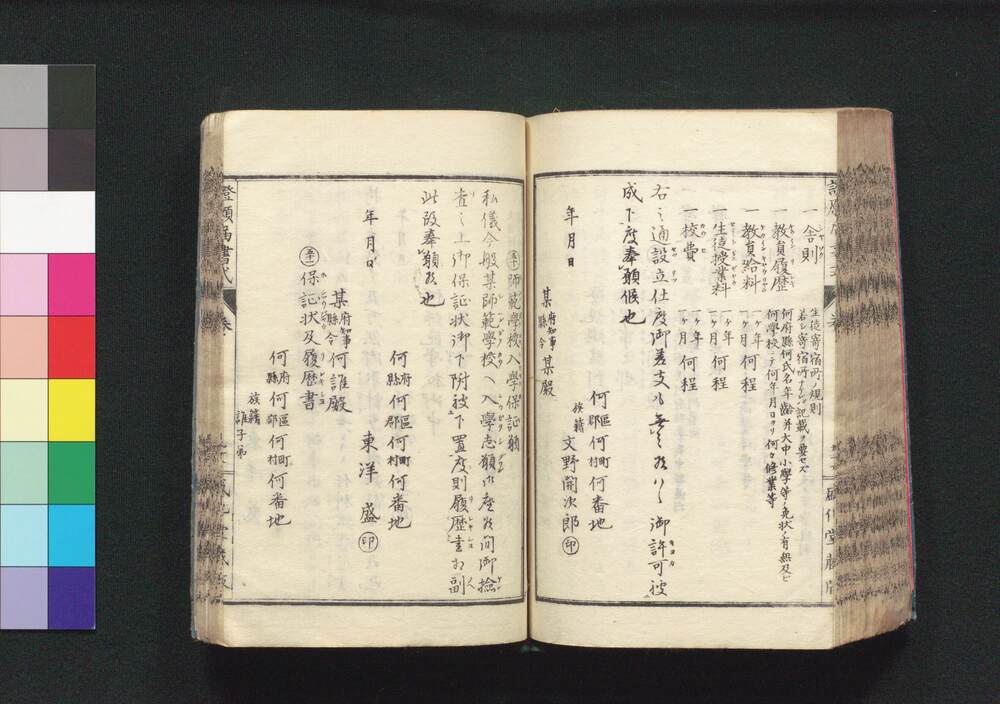 一 舎則 生徒寄宿所ノ規則
若シ寄宿所ナケレハ記載ヲ要セズ
一 教員履歴 何府縣何氏名年齢并大中小學等ノ免状ノ有無及ヒ
何學校ニテ何年月ヨリ何々修業等
一 教員給料 一ヶ年一ヶ月何程
一 生徒授業料 一ヶ年一ヶ月何程
一 校費 一ヶ年一ヶ月何程
右之通設立仕度御差支モ無之候ハヽ御許可被
成下度奉願候也
何府縣何區郡何町村何番地
族籍 文野開次郎 印
年月日
某府知事縣令某殿
五十 師範學校入學保証願
私儀今般某師範學校ヘ入學志願御座候間御撿
査之上御保証状御下附被下置度則履歴書相副
此段奉願候也
何府縣何區郡何町村何番地
東洋盛 印
年月日
某府知事縣令何誰殿
五十一 保証状及履歴書
何府縣何區郡何町村何番地
族籍
誰子弟